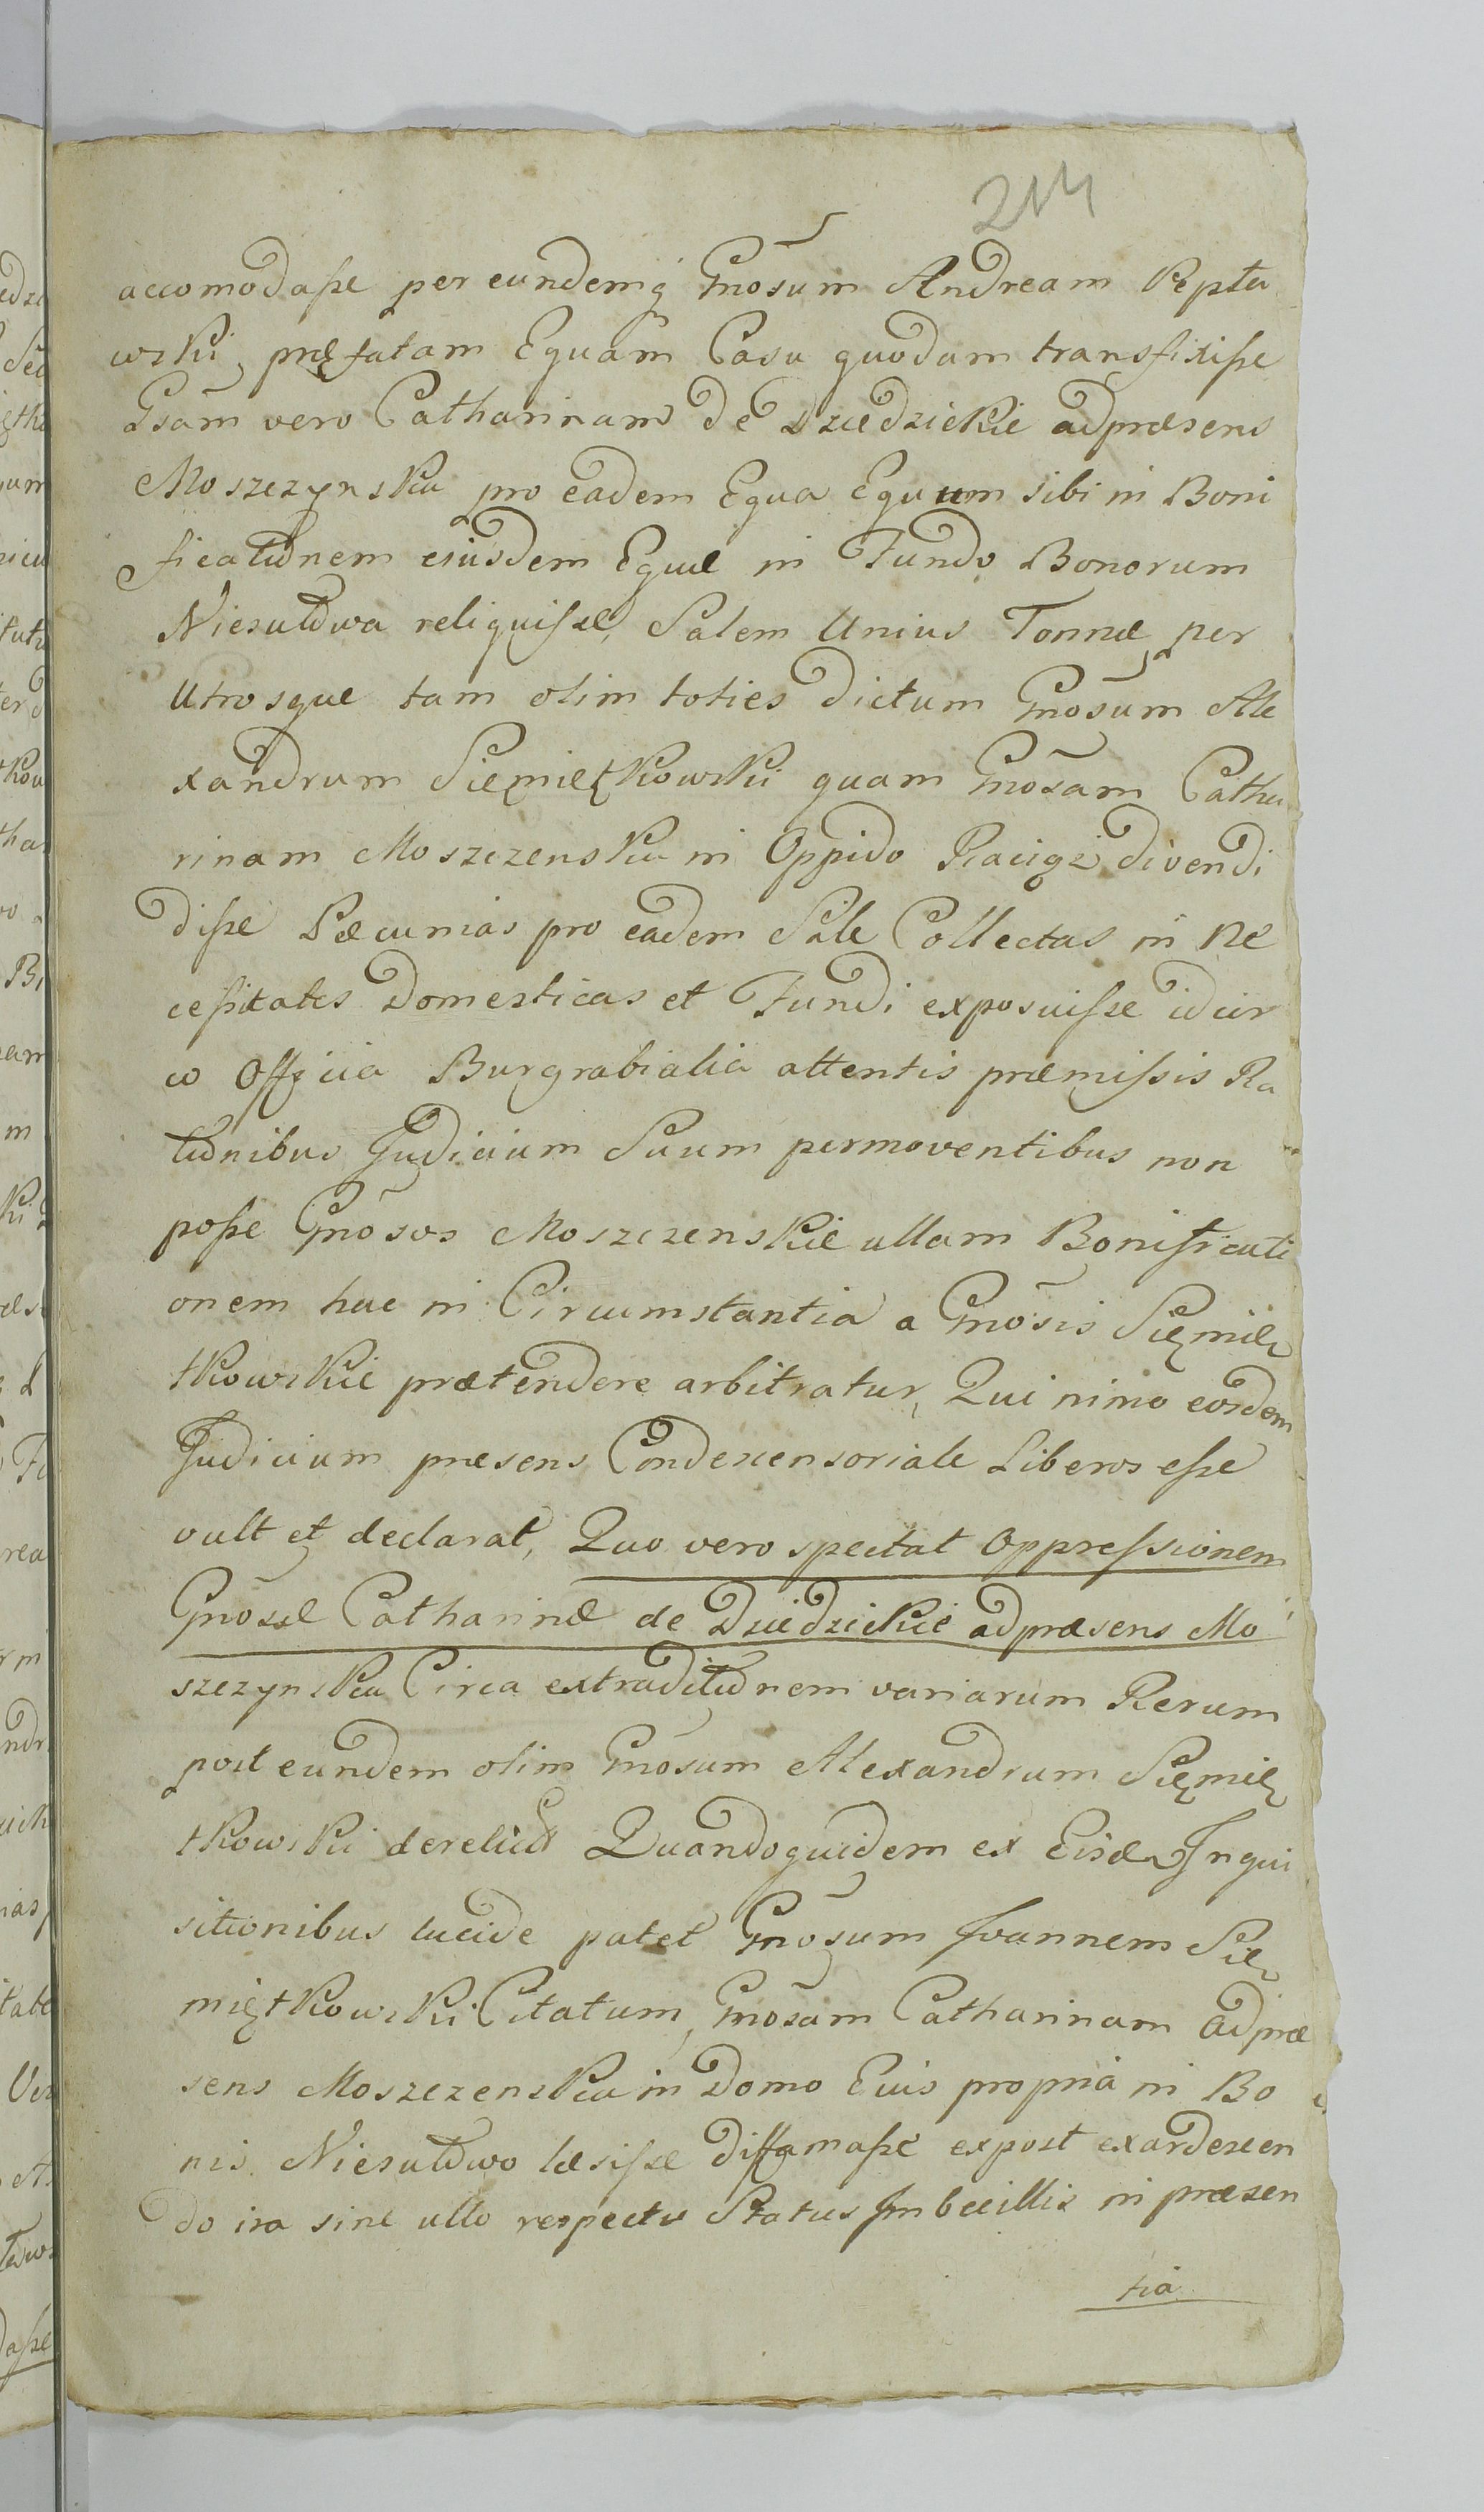 214
accomodaſse per eundemq Gnõsum Andream Repta
wski, præfatam Equam Casu quodam transfixiſse
Gsãm vero Catharinam de Dziedzickie adpræsens
Moszczynska pro eadem Equa Equum sibi in Boni
ficationem eiusdem Equæ in Fundo Bonorum
Niesułowa reliquiſse, Salem Unius Tonnæ, per
Utrosque tam olim toties dictum Gnõsum Ale
xandrum Siemiętkowski quam Gnõsam Catha
rinam Moszczenska in Oppido Raciąz divendi
diſse Pæcunias pro eadem Sale Collectas in Ne
ceſsitates Domesticas et Fundi exposuiſse idcir
co Officia Burgrabialia attentis præmiſsis Ra
tionibus Judicium Suum permoventibus non
poſse Gnõsos Moszczenskie ullam Bonificati
onem hac in Circumstantia a Gnõsis Siemię
tkowskie prætendere arbitratur, Qui nimo eosdem
Judicium præsens Condescensoriale Liberos eſse
vult et declarat, Quo vero spectat Oppreſsionem
Gnõsæ Catharinæ de Dziedzickie adpræsens Mo
szczynska Circa extraditionem variarum Rerum
post eundem olim Gnõsum Alexandrum Siemię
tkowski derelict Quandoquidem ex Eisd Inqui
sitionibus lucide patet Gnõsum Joannem Sie
miętkowski Citatum, Gnõsam Catharinam Adpræ
sens Moszczenska in Domo Eius propria in Bo
nis Niesułowo læsiſse diffamaſse expost exardescen
do ira sine ullo respectu Status Imbecillis in præsen
tia